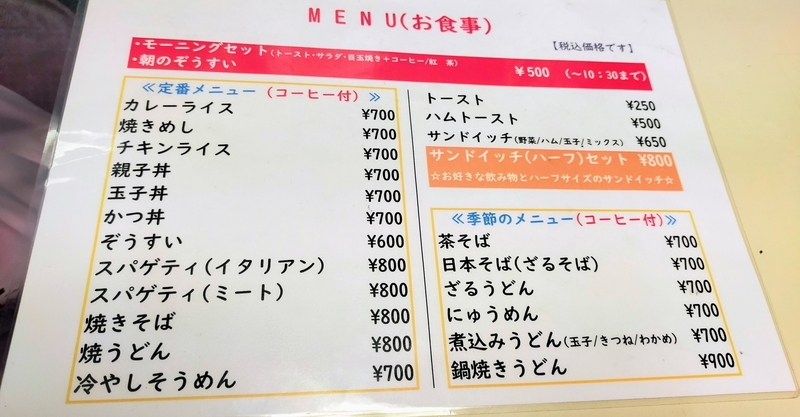 MENU(お食事)
【税込価格です】
・モーニングセット(トースト・サラダ・目玉焼き+コーヒー/紅 茶)
・朝のぞうすい
¥500 (～10:30まで)
≪定番メニュー (コーヒー付) ≫
カレーライス ¥700
焼きめし ¥700
チキンライス ¥700
親子丼 ¥700
玉子丼 ¥700
かつ丼 ¥700
ぞうすい ¥600
スパゲティ(イタリアン) ¥800
スパゲティ(ミート) ¥800
焼きそば ¥800
焼うどん ¥800
冷やしそうめん ¥700
トースト ¥250
ハムトースト ¥500
サンドイッチ(野菜/ハム/玉子/ミックス) ¥650
サンドイッチ(ハーフ)セット ¥800
☆お好きな飲み物とハーフサイズのサンドイッチ☆
≪季節のメニュー(コーヒー付)≫
茶そば ¥700
日本そば(ざるそば) ¥700
ざるうどん ¥700
にゅうめん ¥700
煮込みうどん(玉子/きつね/わかめ) ¥700
鍋焼きうどん ¥900